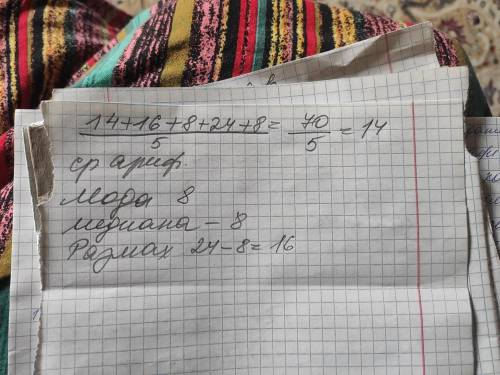 14+16+8+24+8/5 = 70/5 = 14
ср ариф.
Мода 8
медиана - 8
Размах 24-8=16